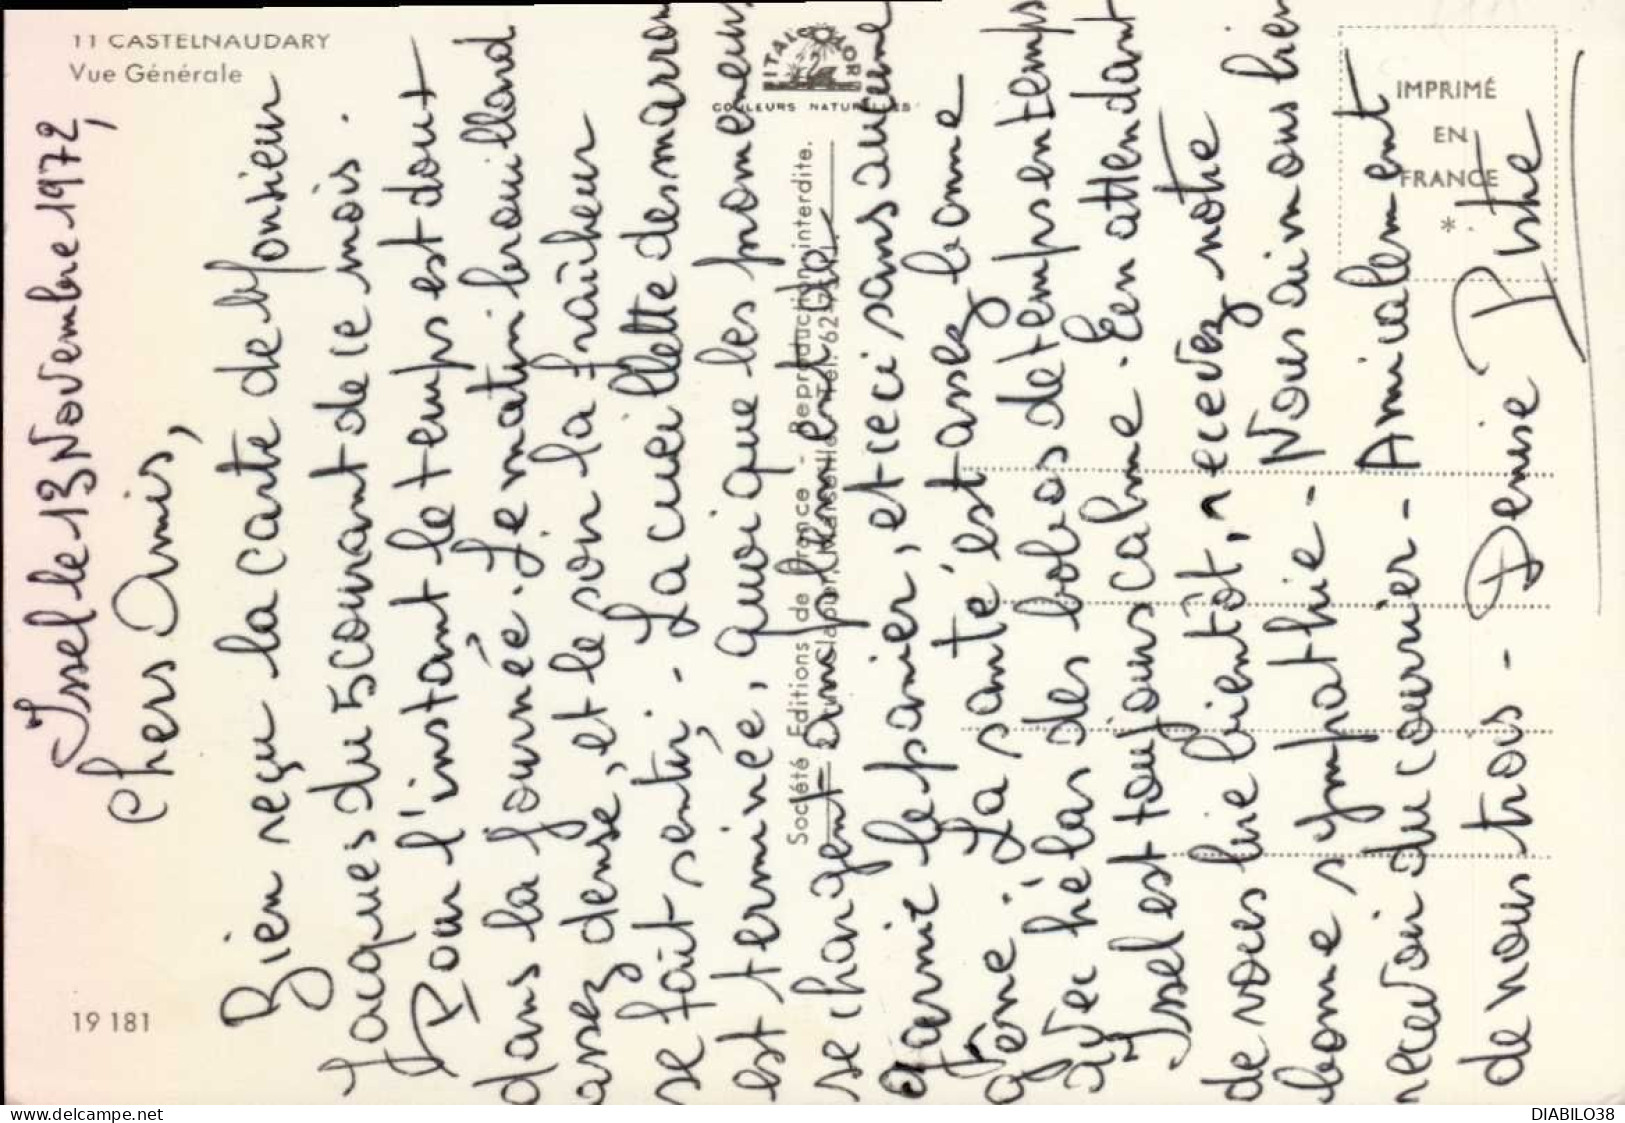 11 CASTELNAUDARY
Vue Générale
ITALCOLOR
COULEURS NATURELLES
IMPRIMÉ
EN
FRANCE
*
19 181
Société Editions de France - Reproduction interdite.
Marseille - Tél. 62
Issel le 13 Novembre 1972,
Chers Amis,
Bien reçu la carte de Monsieur
Jacques du 5 courant de ce mois.
Pour l'instant le temps est doux
dans la journée. Le matin brouillard
assez dense, et le soir la fraîcheur
se fait sentir. La cueillette des marrons
est terminée, quoique les promeneurs
se chargent amplement de
garnir le panier, et ceci sans aucune
gêne. La santé est assez bonne
avec hélas des bobos de temps en temps
Issel est toujours calme. En attendant
de vous lire bientôt, recevez notre
bonne sympathie - Nous aimons bien
recevoir du courrier - Amicalement
de nous trois - Denise Pistre
DIABILO38